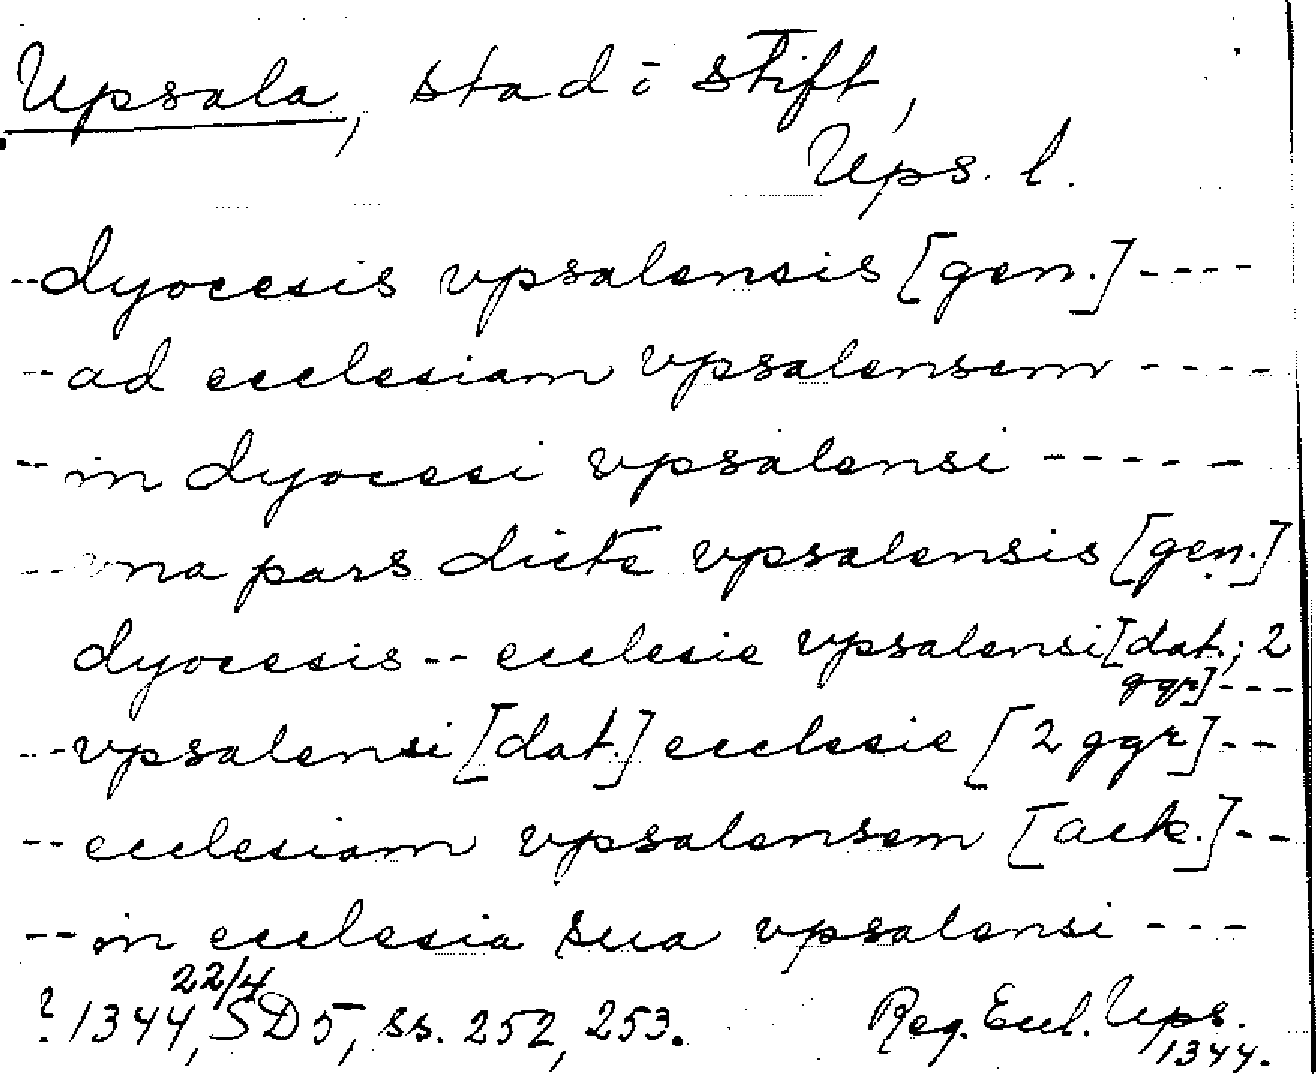 Upsala, stad o stift,
Ups. l.
--dyocesis vpsalensis [gen.]----
--ad ecclesiam vpsalensem ----
--in dyocesi vpsalensi -----
--vna pars dicte vpsalensis [gen.]
dyocesis-- ecclesie vpsalensi [dat.; 2
ggr]---
--vpsalensi [dat.] ecclesie [2 ggr]--
--ecclesiam vpsalensem [ack.]--
--in ecclesia sua vpsalensi ---
22/4
? 1344, SD5, ss. 252, 253. Reg. Eccl. Ups.
1344.